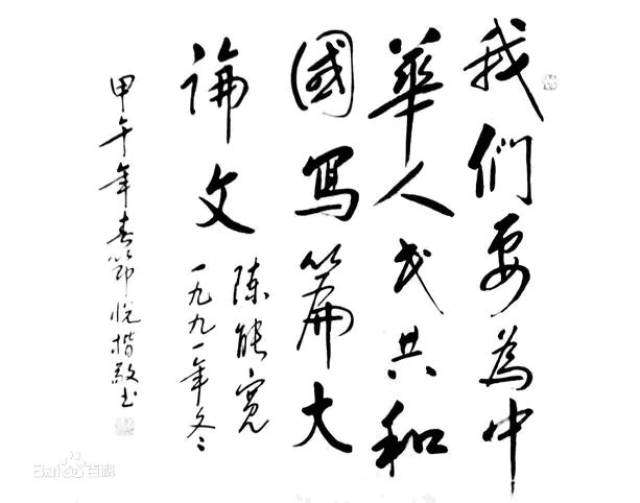 我们要為中
華人民共和
國寫篇大
論文
陈能宽
一九九一年冬
甲午年春节悦楷敬书
Baidu百科